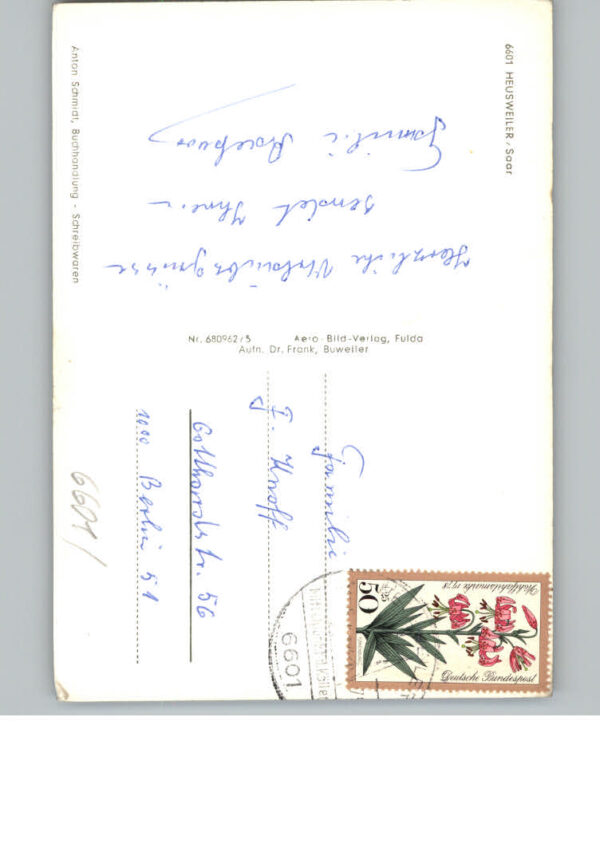 6601 HEUSWEILER/Saar
Herzliche Urlaubsgrüsse
sendet Ihnen
Familie
Anton Schmidt, Buchhandlung - Schreibwaren
Nr. 680962/5 Aero-Bild-Verlag, Fulda
Aufn. Dr. Frank, Buweiler
Familie
Knoff
Gotthardstr. 56
1000 Berlin 51
6601/
Deutsche Bundespost
50
Wohlfahrtsmarke 1978
6601